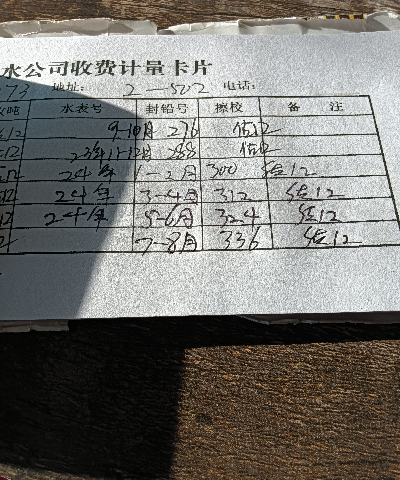 水公司收费计量卡片
73 地址: 2-502 电话:
吨 水表号 封铅号 擦校 备 注
12 9-10月 276 估12
12 23年11-12月 288 估12
24年 1-2月 300 估12
24年 3-4月 312 估12
12 24年 5-6月 324 估12
7-8月 336 估12